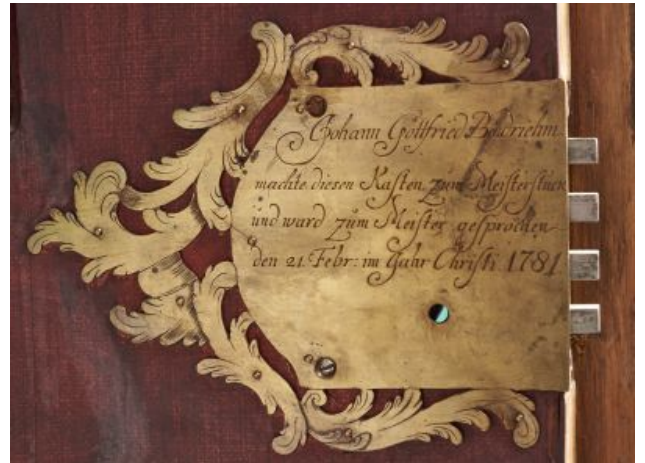 Johann Gottfried Bodriehm
machte diesen Kasten zum Meisterstück
und ward zum Meister gesprochen
den 21. Febr: im Jahr Christi 1781